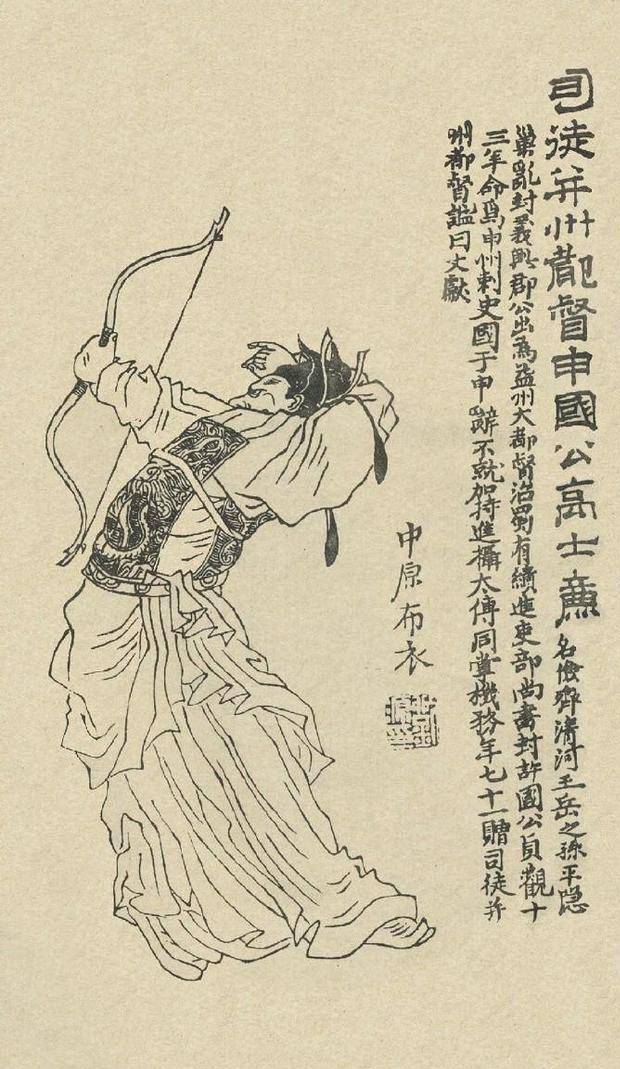 司徒并州都督申國公高士廉 名儉齊清河王岳之孫平隱
巢亂封義興郡公出為益州大都督治蜀有績進吏部尚書封許國公貞觀十
三年命爲申州刺史國于申辭不就加持進攝太傅同掌機務年七十一贈司徒并
州都督謚曰文獻
中原布衣